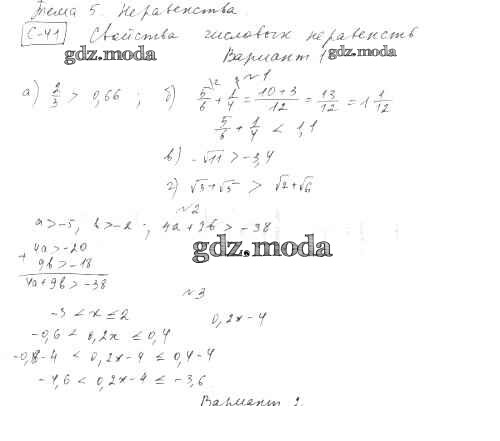 Тема 5. Неравенства.
С-41 Свойства числовых неравенств
gdz.moda Вариант 1 gdz.moda
№1
а) 2/3 > 0,66 ; б) 5/6 + 1/4 = 10+3/12 = 13/12 = 1 1/12
5/6 + 1/4 < 1,1
в) -√11 > -3,4
г) √3+√5 > √2+√6
№2
a>-5, b>-2 ; 4a+9b > -38
gdz.moda
+ 4a>-20
9b>-18
4a+9b>-38
№3
-3 < x ≤ 2 0,2x-4
-0,6 < 0,2x ≤ 0,4
-0,6-4 < 0,2x-4 ≤ 0,4-4
-4,6 < 0,2x-4 ≤ -3,6
Вариант 2.